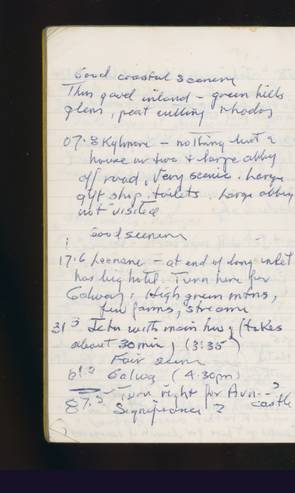 Good coastal scenery
Then good inland - green hills
glens, peat cutting rhodos
07.8 Kylmore - nothing but a
house or two & large abbey
off road, Very scenic. Large
gift shop, toilets. Large abbey
not visited
Good scenery
17.6 Leenane - at end of long inlet
has big hotel. Turn here for
Galway. High green mtns,
few farms, streams
31.3 Jctn with main hwy (takes
about 30 min) (3:35)
Fair scene
Galway (4:30pm)
87.5 Turn right for
castle
Significance?